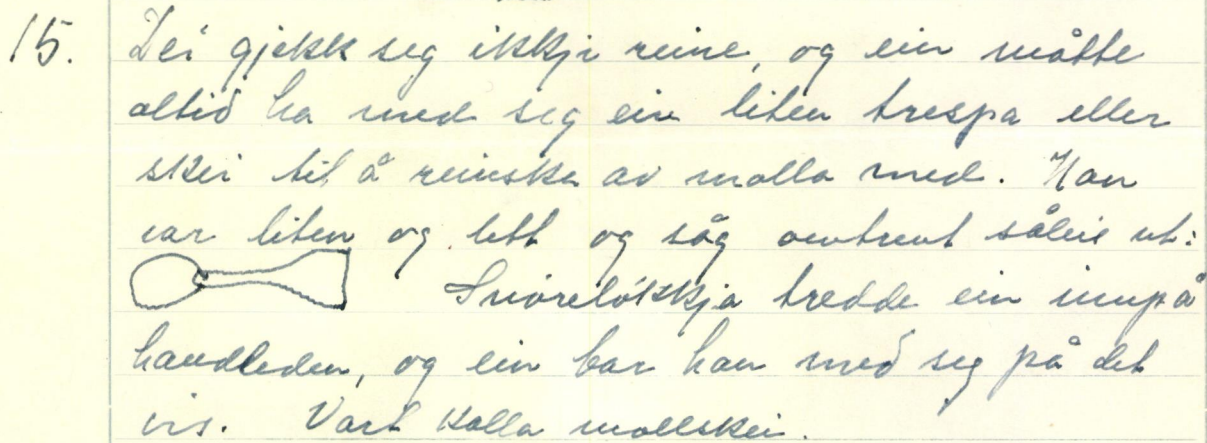 15. Dei gjekk seg ikkji reine, og ein måtte
altid ha med seg ein liten trespa eller
skei til å reinske av molla med. Han
var liten og lett og såg omtrent såleis ut:
Snøreløkkja tredde ein innpå
handleden, og ein bar han med seg på det
vis. Vart kalla mollskei.